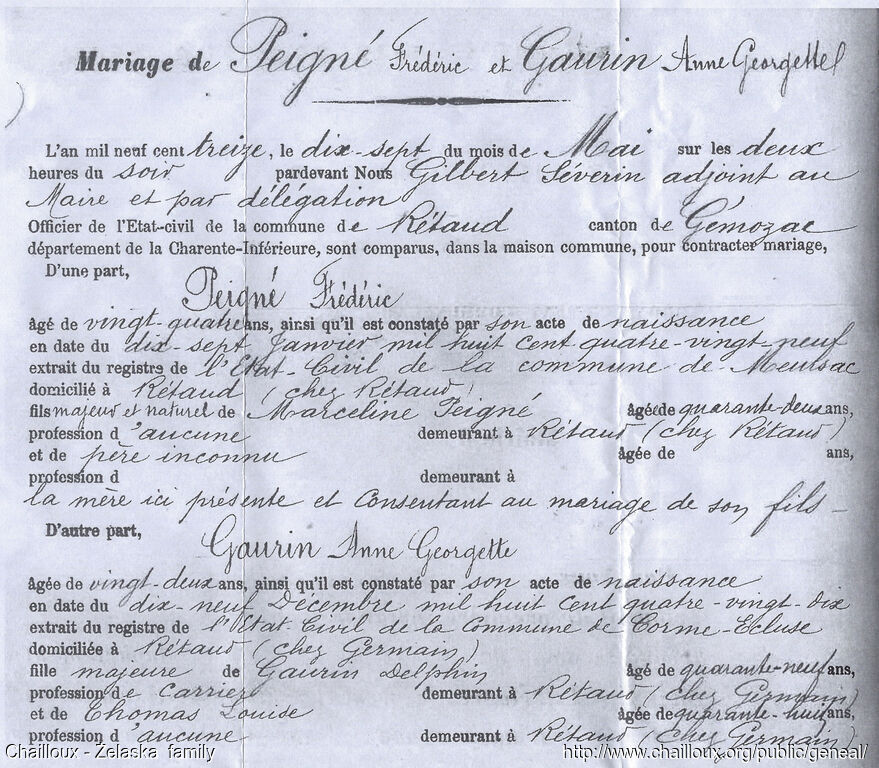 Mariage de Peigné Frédéric et Gaurin Anne Georgette
L'an mil neuf cent treize, le dix-sept du mois de Mai sur les deux
heures du soir pardevant Nous Gilbert Séverin adjoint au
Maire et par délégation
Officier de l'Etat-civil de la commune de Rétaud canton de Gémozac
département de la Charente-Inférieure, sont comparus, dans la maison commune, pour contracter mariage,
D'une part,
Peigné Frédéric
âgé de vingt-quatre ans, ainsi qu'il est constaté par son acte de naissance
en date du dix-sept Janvier mil huit cent quatre-vingt-neuf
extrait du registre de l'Etat-Civil de la commune de Meursac
domicilié à Rétaud (chez Rétaud)
fils majeur et naturel de Marceline Peigné âgée de quarante-deux ans,
profession d'aucune demeurant à Rétaud (chez Rétaud)
et de père inconnu âgée de ans,
profession d demeurant à
la mère ici présente et consentant au mariage de son fils -
D'autre part,
Gaurin Anne Georgette
âgée de vingt-deux ans, ainsi qu'il est constaté par son acte de naissance
en date du dix-neuf Décembre mil huit cent quatre-vingt-dix
extrait du registre de l'Etat-Civil de la Commune de Corme-Ecluse
domiciliée à Rétaud (chez Germain)
fille majeure de Gaurin Delphin âgé de quarante-neuf ans,
profession de Carrier demeurant à Rétaud (chez Germain)
et de Thomas Louise âgée de quarante-huit ans,
profession d'aucune demeurant à Rétaud (chez Germain)
Chailloux - Żelaska family http://www.chailloux.org/public/geneal/